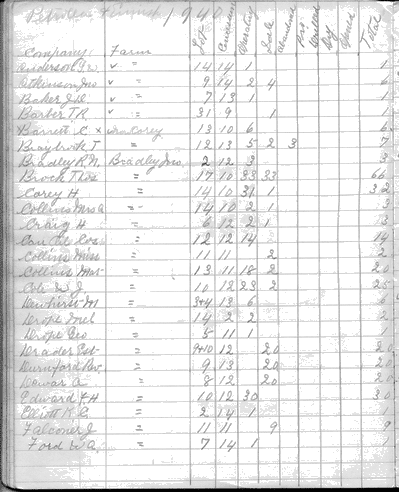 1940
Company Farm Lot Concession Operating Idle Abandoned Non Drilled Dry Total
Anderson " 14 14 1 1
Atkinson Jno " 9 14 2 4 6
Baker J.D. " 7 13 1 1
Barber T.R. " 31 9 1 1
Barrett C. x Corey 13 10 6 6
Braybrook T " 12 13 5 2 3 7
Bradley R.N. Bradley Jno. 2 12 3 3
Brock Thos " 17 10 33 33 66
Corey H " 14 10 31 1 32
Collins Mrs A " 14 10 2 1 3
Craig H " 6 12 2 1 3
Can Oil Cos " 12 12 14 14
Collins Miss " 11 11 2 2
Collins " 13 11 18 2 20
Cole W J " 10 12 23 2 25
Dewhirst M " 3+4 13 6 6
Drope Mel " 14 2 2 2
Drope Geo " 5 11 1 1
Drader Est " 9+10 12 20 20
Durnford " 9 13 20 20
Dewar A " 8 12 20 20
Edward F.H " 10 12 30 30
Elliott R.C. " 2 14 1 1
Falconer J " 11 11 9 9
Ford W.A. " 7 14 1 1